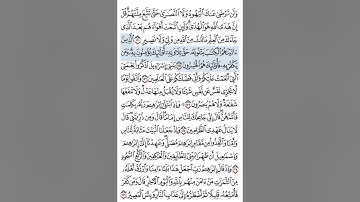 وَلَن تَرْضَىٰ عَنكَ ٱلْيَهُودُ وَلَا ٱلنَّصَٰرَىٰ حَتَّىٰ تَتَّبِعَ مِلَّتَهُمْ قُلْ
إِنَّ هُدَى ٱللَّهِ هُوَ ٱلْهُدَىٰ وَلَئِنِ ٱتَّبَعْتَ أَهْوَآءَهُم بَعْدَ ٱلَّذِى
جَآءَكَ مِنَ ٱلْعِلْمِ مَا لَكَ مِنَ ٱللَّهِ مِن وَلِىٍّ وَلَا نَصِيرٍ ١٢٠ ٱلَّذِينَ
ءَاتَيْنَٰهُمُ ٱلْكِتَٰبَ يَتْلُونَهُۥ حَقَّ تِلَاوَتِهِۦٓ أُو۟لَٰٓئِكَ يُؤْمِنُونَ بِهِۦ وَمَن
يَكْفُرْ بِهِۦ فَأُو۟لَٰٓئِكَ هُمُ ٱلْخَٰسِرُونَ ١٢١ يَٰبَنِىٓ إِسْرَٰٓءِيلَ ٱذْكُرُوا۟ نِعْمَتِىَ
ٱلَّتِىٓ أَنْعَمْتُ عَلَيْكُمْ وَأَنِّى فَضَّلْتُكُمْ عَلَى ٱلْعَٰلَمِينَ ١٢٢ وَٱتَّقُوا۟ يَوْمًا
لَّا تَجْزِى نَفْسٌ عَن نَّفْسٍ شَيْـًٔا وَلَا يُقْبَلُ مِنْهَا عَدْلٌ وَلَا تَنفَعُهَا
شَفَٰعَةٌ وَلَا هُمْ يُنصَرُونَ ١٢٣ وَإِذِ ٱبْتَلَىٰٓ إِبْرَٰهِـۧمَ رَبُّهُۥ بِكَلِمَٰتٍ
فَأَتَمَّهُنَّ قَالَ إِنِّى جَاعِلُكَ لِلنَّاسِ إِمَامًا قَالَ وَمِن ذُرِّيَّتِى قَالَ
لَا يَنَالُ عَهْدِى ٱلظَّٰلِمِينَ ١٢٤ وَإِذْ جَعَلْنَا ٱلْبَيْتَ مَثَابَةً لِّلنَّاسِ
وَأَمْنًا وَٱتَّخِذُوا۟ مِن مَّقَامِ إِبْرَٰهِـۧمَ مُصَلًّى وَعَهِدْنَآ إِلَىٰٓ إِبْرَٰهِـۧمَ
وَإِسْمَٰعِيلَ أَن طَهِّرَا بَيْتِىَ لِلطَّآئِفِينَ وَٱلْعَٰكِفِينَ وَٱلرُّكَّعِ ٱلسُّجُودِ
١٢٥ وَإِذْ قَالَ إِبْرَٰهِـۧمُ رَبِّ ٱجْعَلْ هَٰذَا بَلَدًا ءَامِنًا وَٱرْزُقْ أَهْلَهُۥ
مِنَ ٱلثَّمَرَٰتِ مَنْ ءَامَنَ مِنْهُم بِٱللَّهِ وَٱلْيَوْمِ ٱلْـَٔاخِرِ قَالَ وَمَن كَفَرَ
فَأُمَتِّعُهُۥ قَلِيلًا ثُمَّ أَضْطَرُّهُۥٓ إِلَىٰ عَذَابِ ٱلنَّارِ وَبِئْسَ ٱلْمَصِيرُ ١٢٦